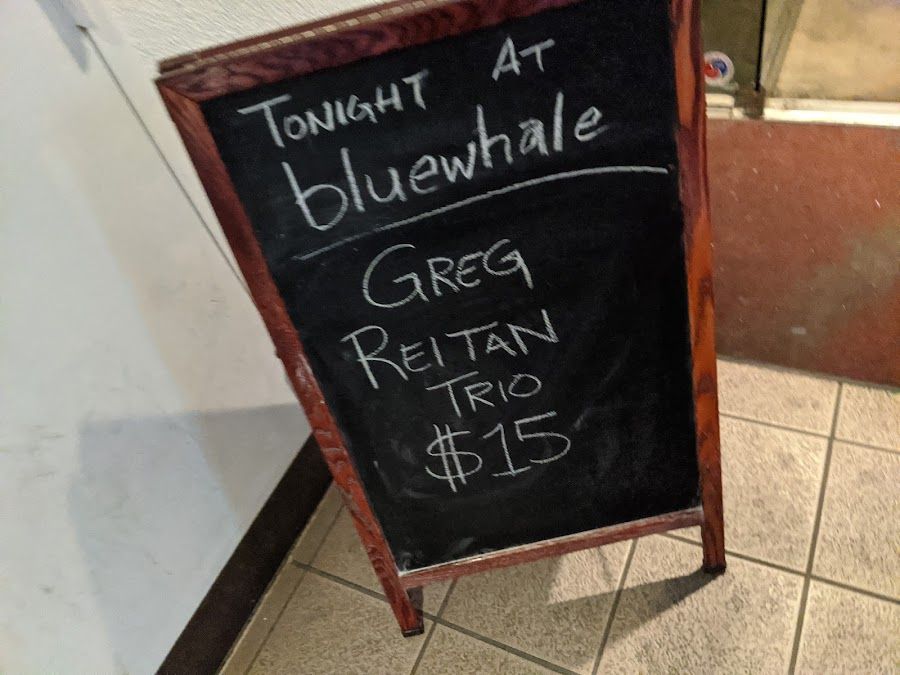 TONIGHT AT
bluewhale
GREG
REITAN
TRIO
$15